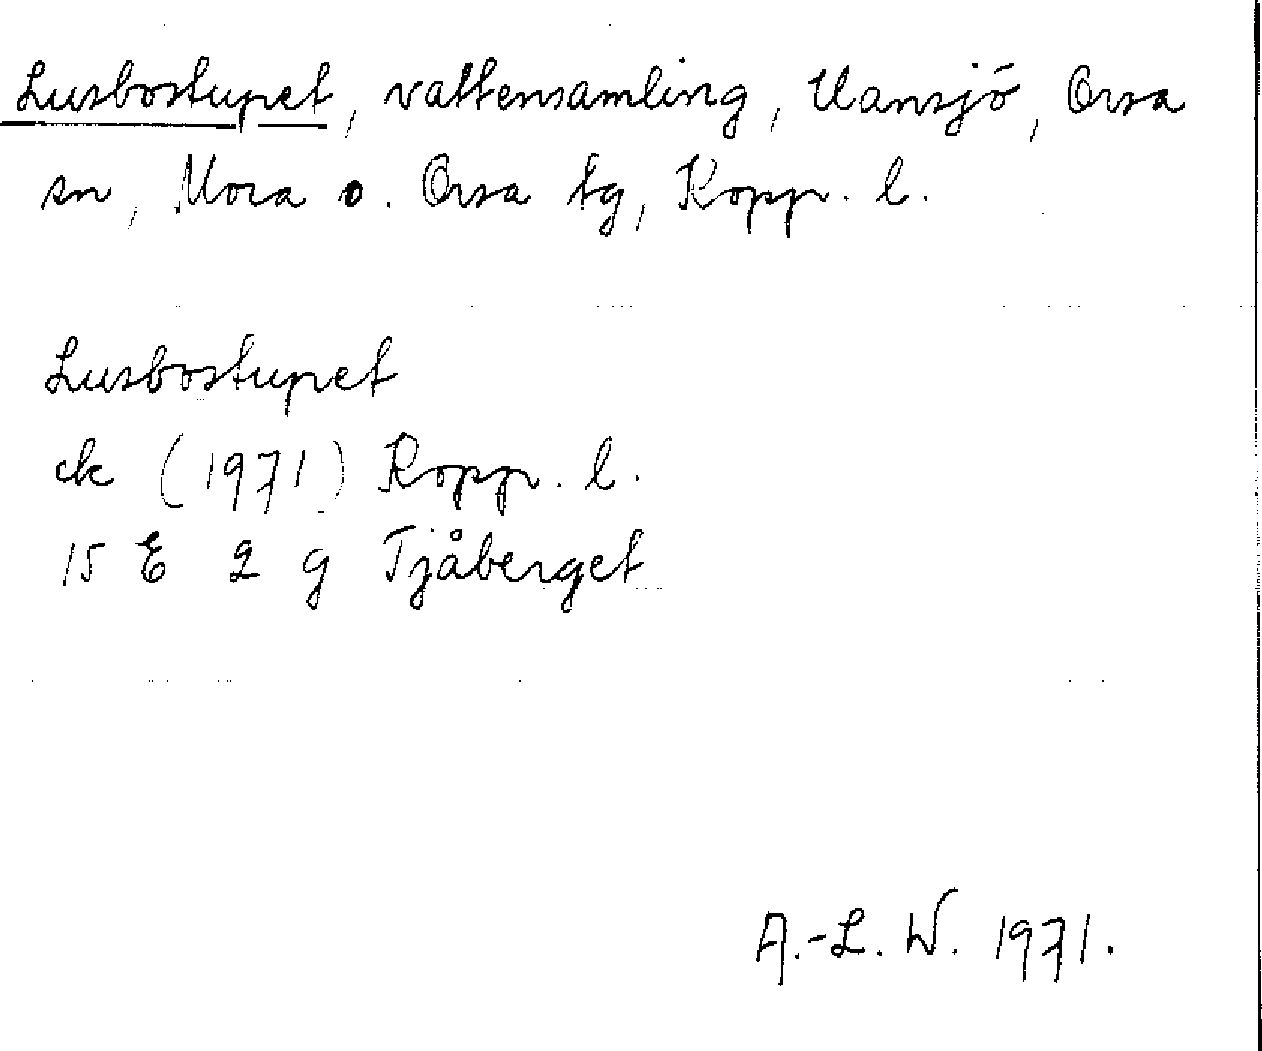 Lusbostupet, vattensamling, Hansjö, Orsa
sn, Mora o. Orsa tg, Kopp. l.
Lusbostupet
ek (1971) Kopp. l.
15 E 2 g Tjåberget
A.-L. W. 1971.